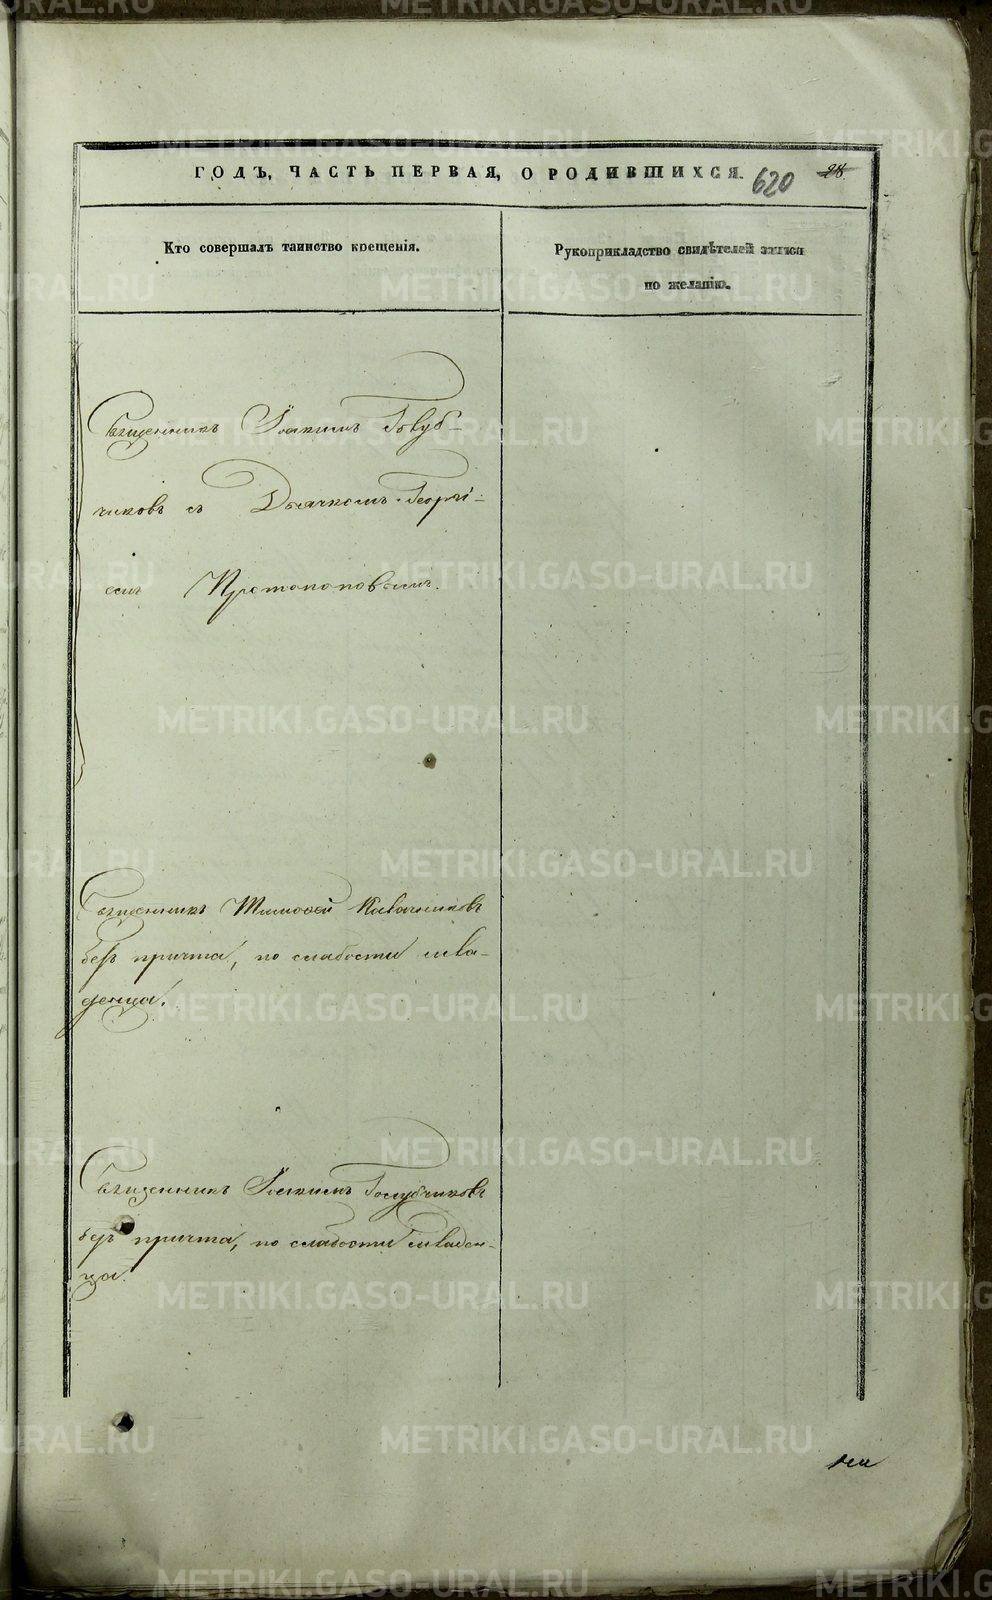 ГОДЪ, ЧАСТЬ ПЕРВАЯ, О РОДИВШИХСЯ.
620 28
Кто совершалъ таинство крещенія.
Рукоприкладство свидѣтелей записи
по желанію.
Священникъ Іоакимъ Голуб-
чиковъ съ Дьячкомъ Георгі-
емъ Протопоповымъ.
Священникъ Тимоѳей
безъ причта, по слабости мла-
денца.
Священникъ Іоакимъ Голубчиковъ
безъ причта, по слабости младен-
ца.
METRIKI.GASO-URAL.RU